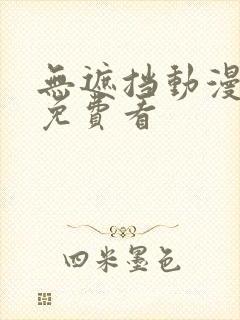 無遮挡動漫
免費看
四米墨色